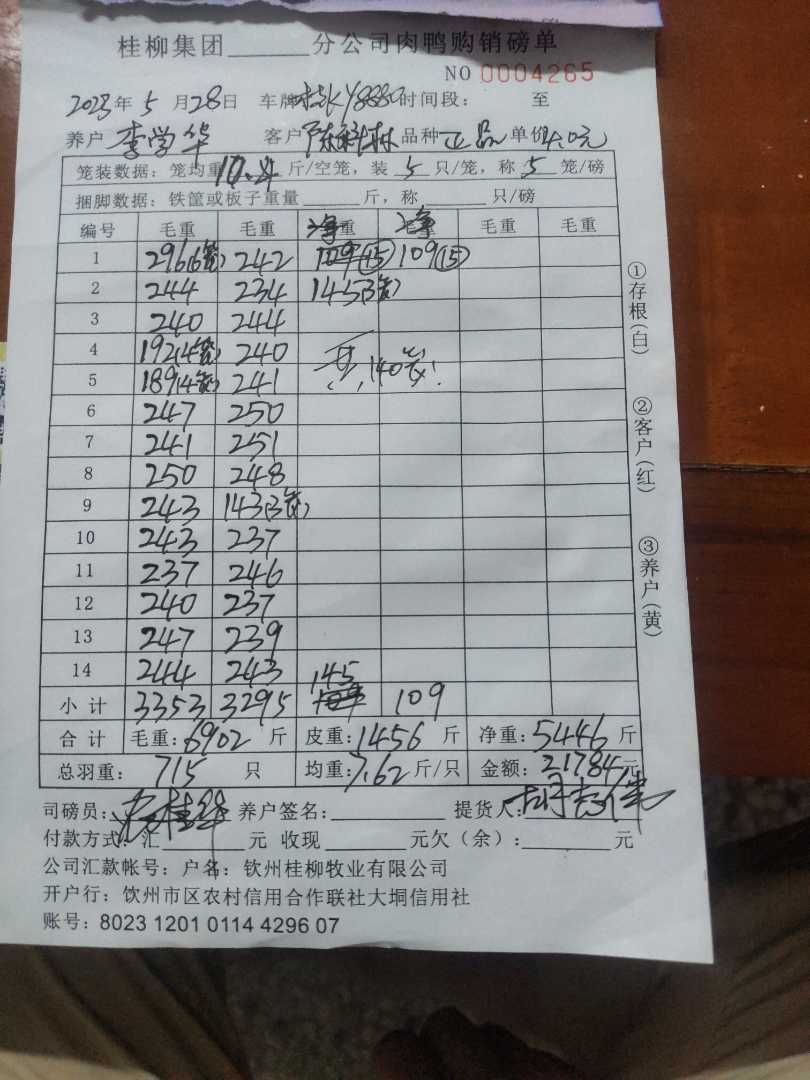 桂柳集团______分公司肉鸭购销磅单
NO 0004265
2023年5月28日 车牌 Y8880 时间段: 至
养户 李学华 客户 陈科林 品种 正品 单价4.0元
笼装数据: 笼均重10.4斤/空笼, 装5只/笼, 称5笼/磅
捆脚数据: 铁筐或板子重量______斤, 称______只/磅
编号 毛重 毛重 净重 净 毛重 毛重
1 296(6笼) 242 109(15) 109(15)
2 244 234 145(3笼)
3 240 244
4 192(4笼) 240 共140笼!
5 189(4笼) 241
6 247 250
7 241 251
8 250 248
9 243 143(3笼)
10 243 237
11 237 246
12 240 237
13 247 239
14 244 243
小计 3353 3295 145 109
合计 毛重:6902斤 皮重:1456斤 净重:5446斤
总羽重: 715只 均重:7.62斤/只 金额:21784元
司磅员: 养户签名: 提货人:
付款方式: 汇______元 收现______元欠(余):______元
公司汇款帐号: 户名: 钦州桂柳牧业有限公司
开户行: 饮州市区农村信用合作联社大垌信用社
账号: 8023 1201 0114 4296 07
①存根(白)
②客户(红)
③养户(黄)